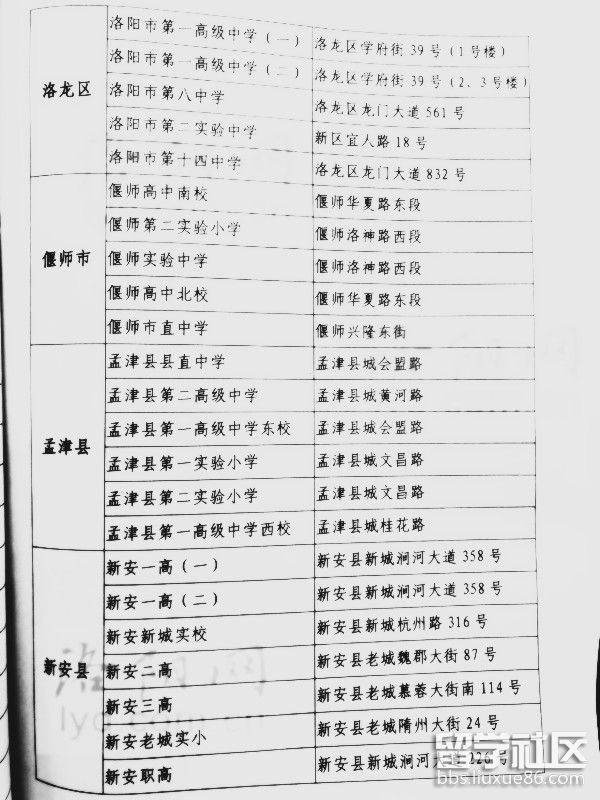 洛龙区
洛阳市第一高级中学（一） 洛龙区学府街 39 号（1 号楼）
洛阳市第一高级中学（二） 洛龙区学府街 39 号（2、3 号楼）
洛阳市第八中学 洛龙区龙门大道 561 号
洛阳市第二实验中学 新区宜人路 18 号
洛阳市第十四中学 洛龙区龙门大道 832 号
偃师市
偃师高中南校 偃师华夏路东段
偃师第二实验小学 偃师洛神路西段
偃师实验中学 偃师洛神路西段
偃师高中北校 偃师华夏路东段
偃师市直中学 偃师兴隆东街
孟津县
孟津县县直中学 孟津县城会盟路
孟津县第二高级中学 孟津县城黄河路
孟津县第一高级中学东校 孟津县城会盟路
孟津县第一实验小学 孟津县城文昌路
孟津县第二实验小学 孟津县城文昌路
孟津县第一高级中学西校 孟津县城桂花路
新安县
新安一高（一） 新安县新城涧河大道 358 号
新安一高（二） 新安县新城涧河大道 358 号
新安新城实校 新安县新城杭州路 316 号
新安二高 新安县老城魏郡大街 87 号
新安三高 新安县老城慕蓉大街南 114 号
新安老城实小 新安县老城隋州大街 24 号
新安职高 新安县新城涧河大道 226 号
洛阳网
留学社区
bbs.liuxue86.com